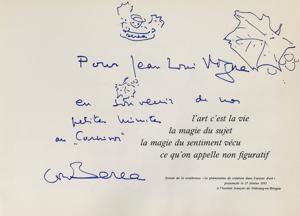 Berea
Pour Jean Louis Vogne
en souvenir de nos
petites minutes
au
l'art c'est la vie
la magie du sujet
la magie du sentiment vécu
ce qu'on appelle non figuratif
Extrait de la conférence «Le phénomène de création dans l'œuvre d'art»
prononcée le 27 février 1957
à l'Institut français de Fribourg-en-Brisgau
Berea